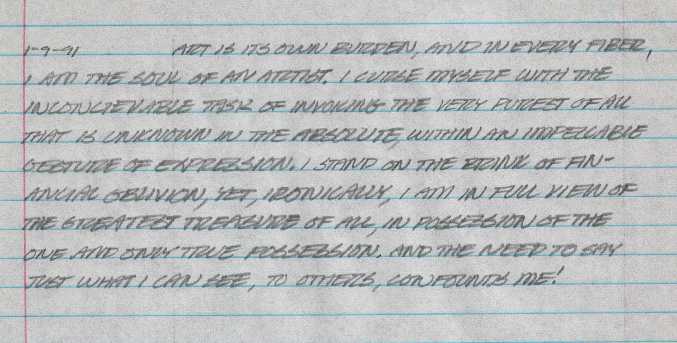 1-9-91 ART IS ITS OWN BURDEN, AND IN EVERY FIBER,
I AM THE SOUL OF AN ARTIST. I CURSE MYSELF WITH THE
INCONCIEVABLE TASK OF INVOKING THE VERY PUREST OF ALL
THAT IS UNKNOWN IN THE ABSOLUTE, WITHIN AN IMPECCABLE
GESTURE OF EXPRESSION. I STAND ON THE BRINK OF FIN-
ANCIAL OBLIVION, YET, IRONICALLY, I AM IN FULL VIEW OF
THE GREATEST TREASURE OF ALL, IN POSSESSION OF THE
ONE AND ONLY TRUE POSSESSION. AND THE NEED TO SAY
JUST WHAT I CAN SEE, TO OTHERS, CONFOUNDS ME!